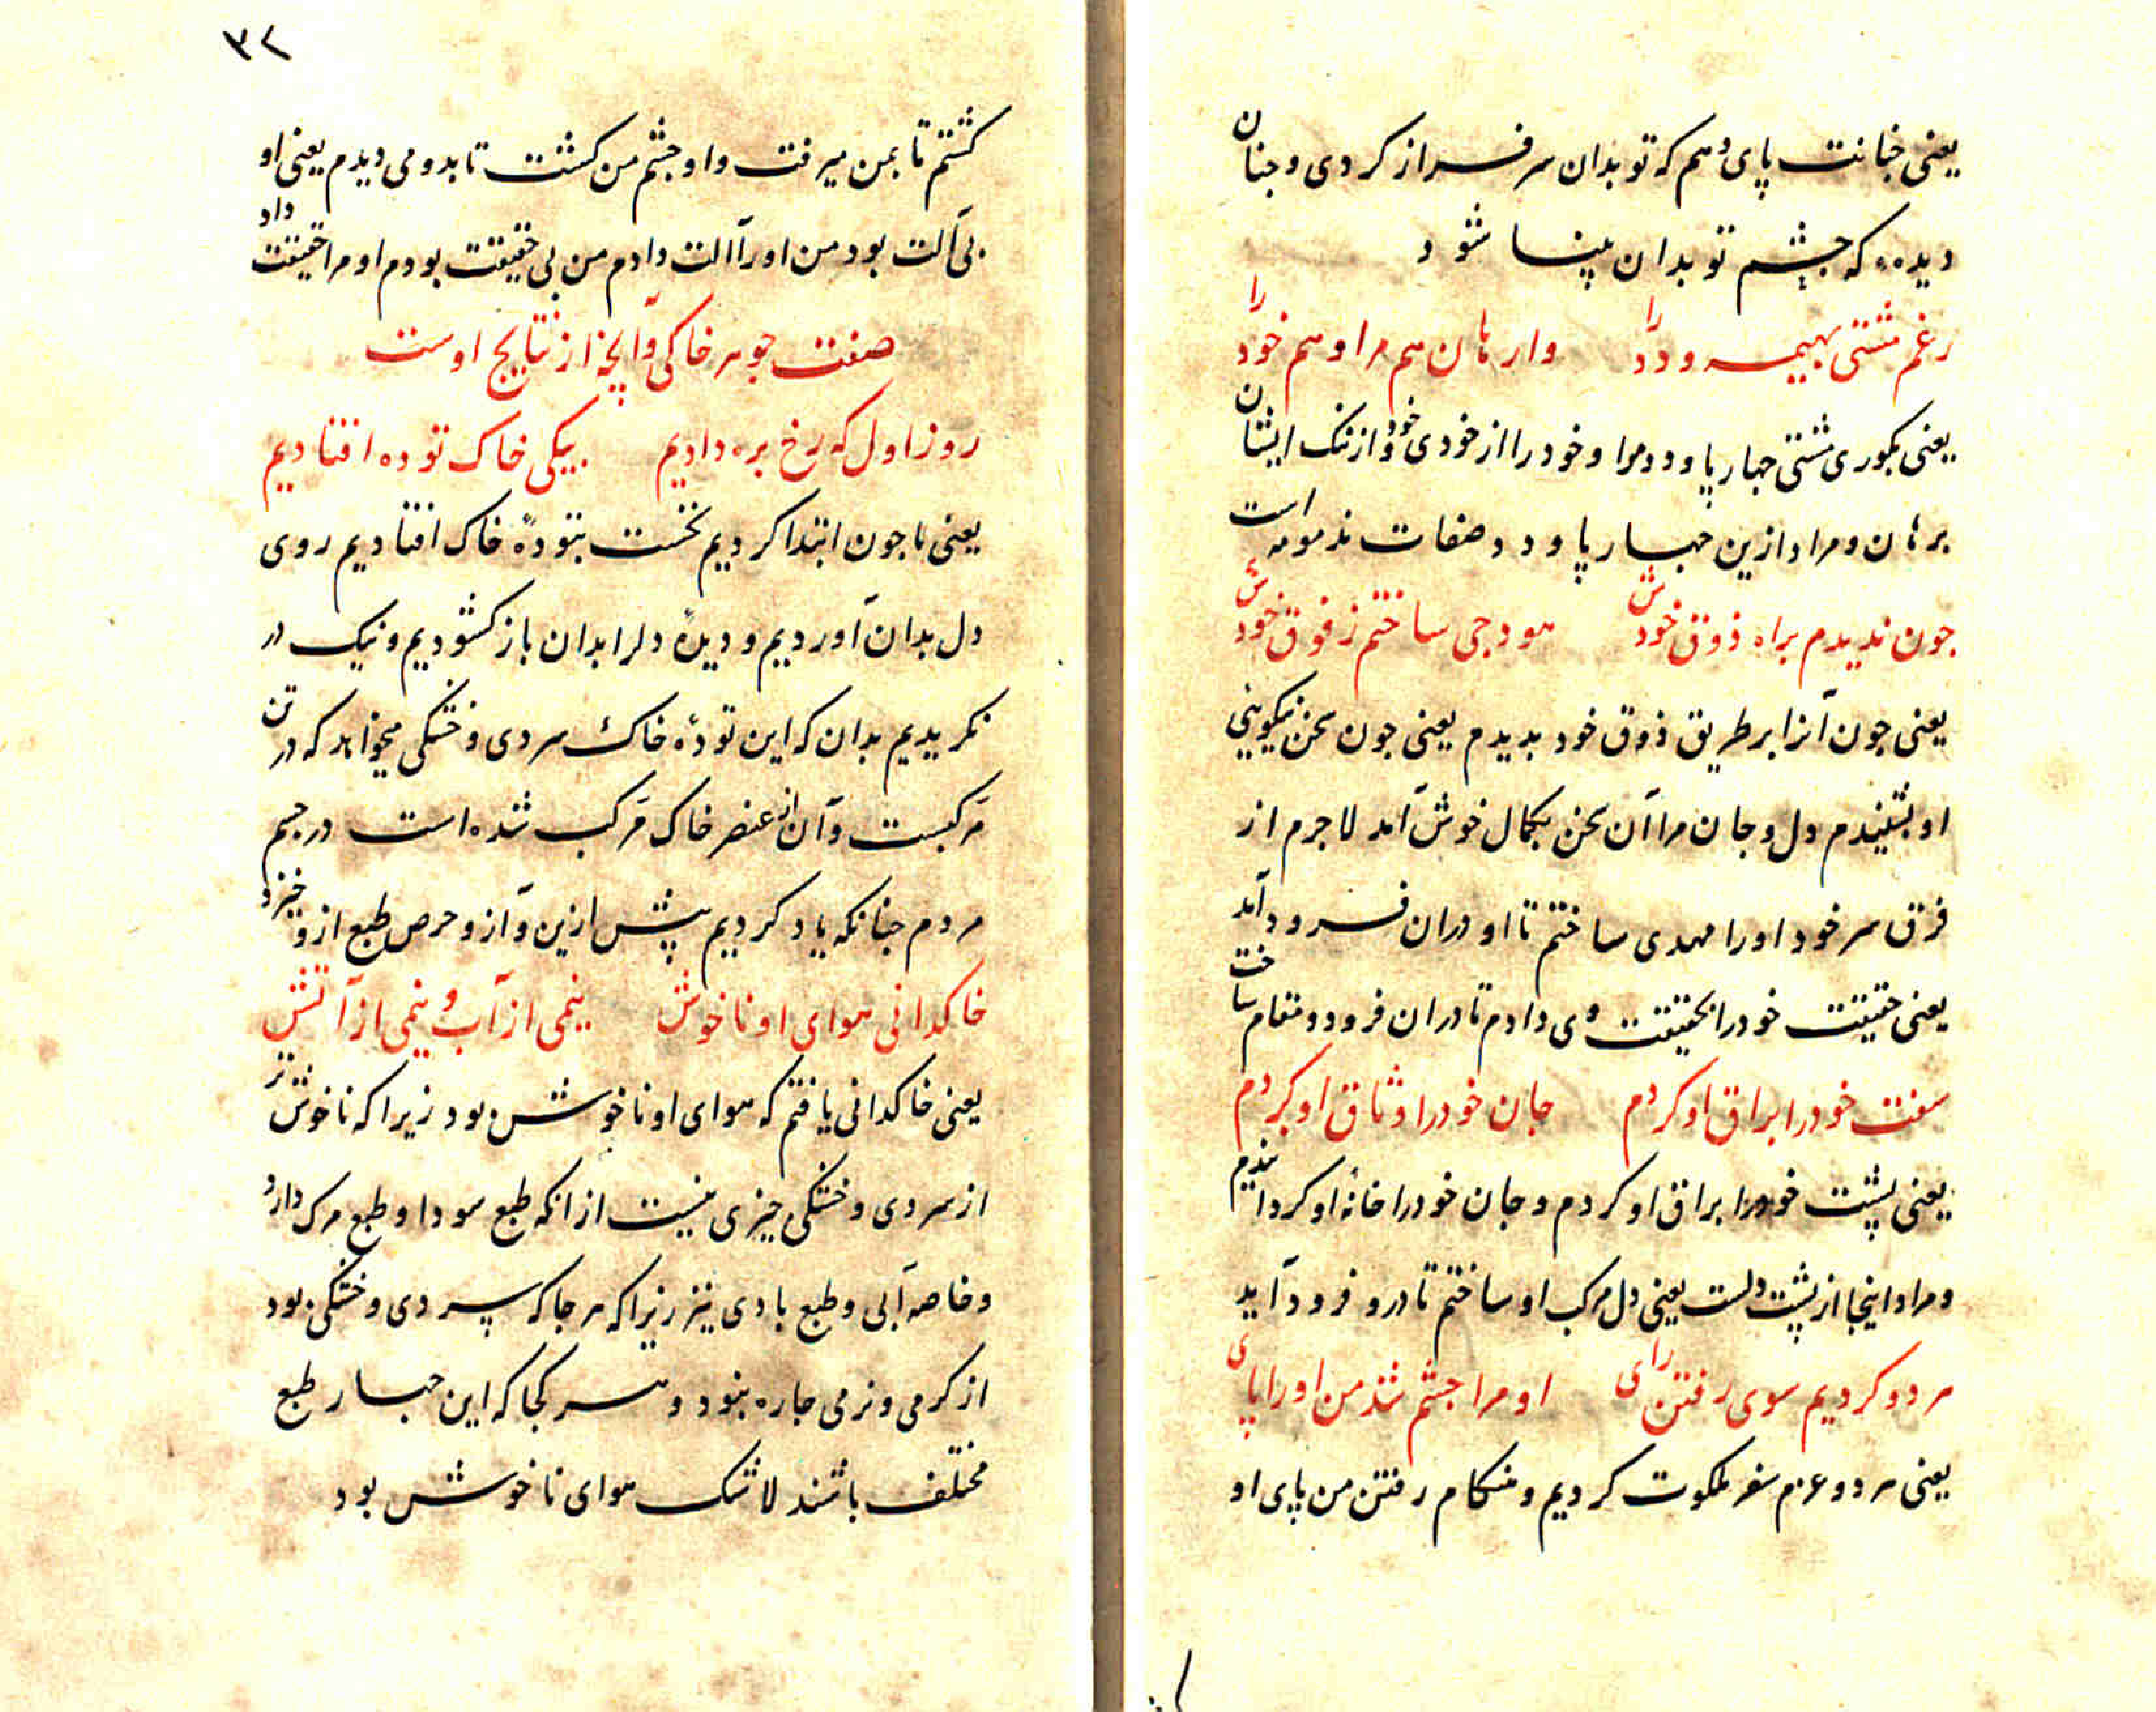 یعنی جنانت پای دهم که تو بدان سرفراز کردی و جنان
دیده که جشم تو بدان بینا شود
رغم مشتی بهیمه و دد را وارهان هم مرا و هم خود را
یعنی بکوری مشتی جهارپا و دد مرا و خود را از خودی خود و از ننک ایشان
برهان و مراد ازین جهارپا و دد صفات مذمومه است
جون ندیدم براه ذوق خودش هودجی ساختم ز فوق خودش
یعنی جون آنرا بر طریق ذوق خود بدیدم یعنی جون سخن نیکویی
او بشنیدم دل و جان مرا آن سخن بکمال خوش آمد لاجرم از
فرق سر خود او را مهدی ساختم تا او دران فرود آمد
یعنی حقیقت خود را بحقیقت وی دادم تا دران فرود و مقام ساخت
سفت خود را براق او کردم جان خود را وثاق او کردم
یعنی پشت خود را براق او کردم و جان خود را خانهٔ او کردانیدم
و مراد اینجا از پشت دلست یعنی دل مرکب او ساختم تا درو فرود آید
هر دو کردیم سوی رفتن رای او مرا جشم شد من او را پای
یعنی هر دو عزم سفر ملکوت کردیم و هنکام رفتن من پای او
۳۲
کشتم تا بمن میرفت و او جشم من کشت تا بدو می دیدم یعنی او
بی آلت بود من او را آلت دادم من بی حقیقت بودم او مرا حقیقت داد
صفت جوهر خاکی و آنچه از نتایج اوست
روز اول که رخ بره دادیم بیکی خاک توده افتادیم
یعنی ما جون ابتدا کردیم نخست بتودهٔ خاک افتادیم روی
دل بدان آوردیم و دیدهٔ دل را بدان باز کشودیم و نیک در
نکریدیم بدان که این تودهٔ خاک سردی و خشکی میخواهد که در تن
مرکبست و آن از عنصر خاک مرکب شده است در جسم
مردم جنانکه یاد کردیم پیش ازین و آز و حرص طبع ازو خیزد
خاکدانی هوای او ناخوش نیمی از آب و نیمی از آتش
یعنی خاکدانی یافتم که هوای او ناخوش بود زیرا که ناخوش تر
از سردی و خشکی جیزی نیست از انکه طبع سودا و طبع مرک دارد
و خاصه آبی و طبع بادی نیز زیرا که هر جا که سردی و خشکی بود
از کرمی و نرمی جاره نبود و هر کجا که این جهار طبع
مختلف باشند لا شک هوای ناخوش بود